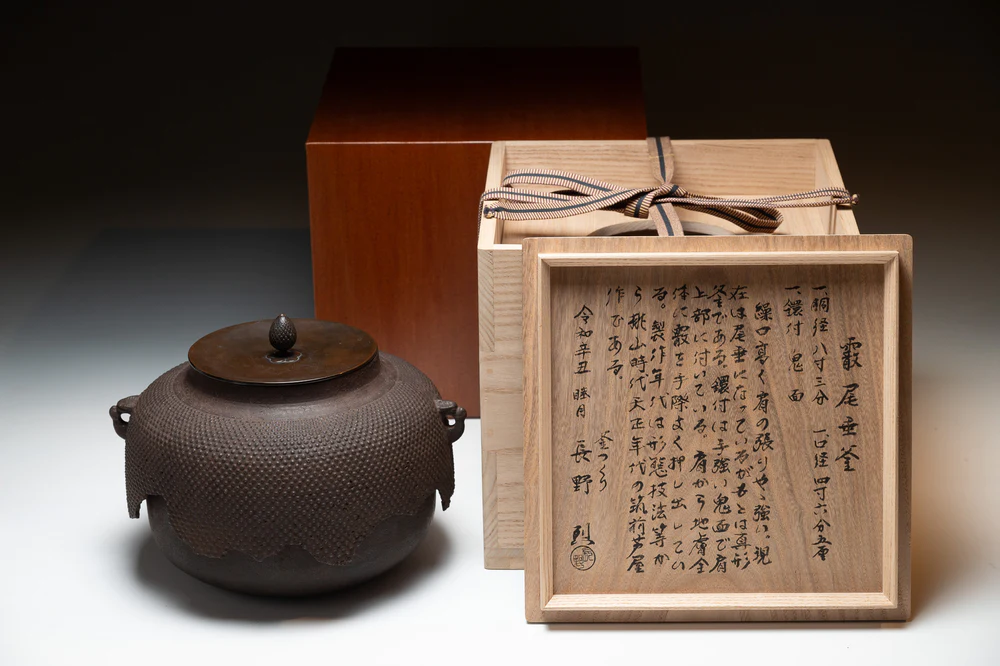 霰尾垂釜
一、胴径 八寸三分 一、口径 四寸六分五厘
一、鐶付 鬼面
繰口高く肩の張りやゝ強い、現
在は尾垂になっているがもとは真形
釜である。鐶付は力強い鬼面で肩
上部に付いている。肩から地膚全
体に霰を手際よく押し出してい
る。製作年代は形態技法等か
ら桃山時代天正年代の筑前芦屋
作である。
令和辛丑 睦月
釜つくり
長野 烈